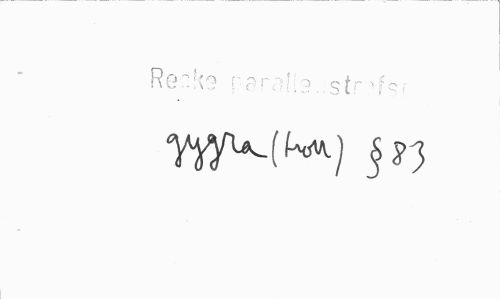 Recke parallelstrofs
gygra (troll) § 83